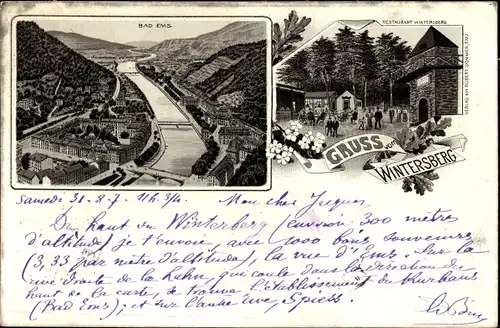 BAD EMS.
RESTAURANT WINTERSBERG
VERLAG VON HUBERT SOMMER, EMS
GRUSS vom
WINTERSBERG
Samedi 31-8-7. 11h.3/4. Mon cher
Du haut du Winterberg (environ 300 mètres
d'altitude) je t'envoie, avec 1000 bons souvenirs
(3,33 par mètre d'altitude), la vue d'Ems. Sur la
rive droite de la Lahn, qui coule dans la direction du
haut de la carte, se trouve l'établissement du Kurhaus
(Bad Ems); et sur l'autre rive, Spiess.